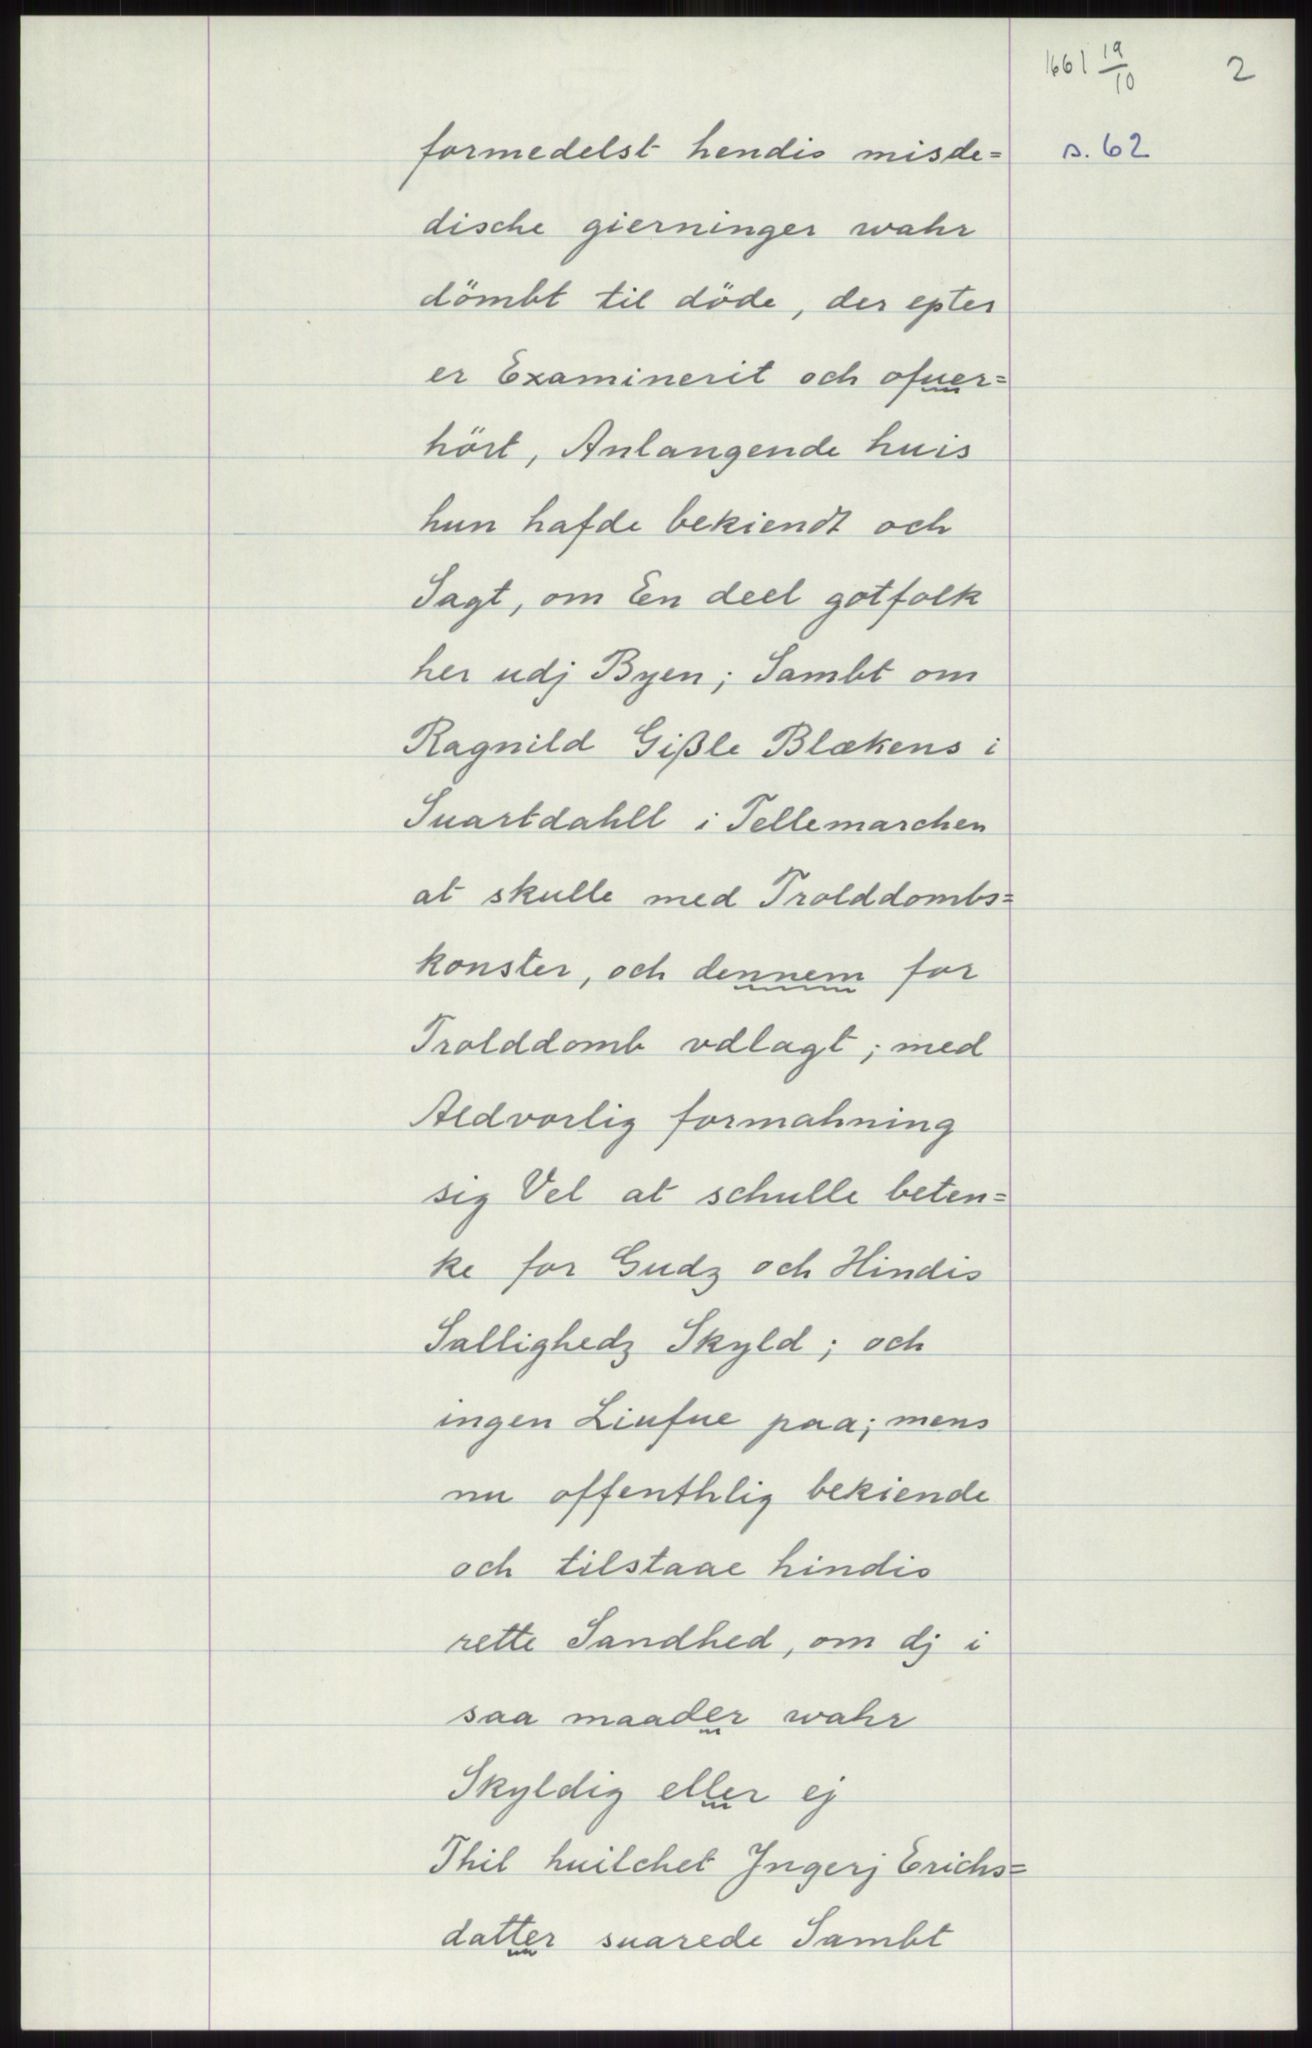 1661 19/10 2
s. 62
formedelst hendis misde=
dische gierninger wahr
dömbt til döde, der epter
er Examinerit och ofuer=
hört, Anlangende huis
hun hafde bekiendt och
Sagt, om En deel gotfolk
her udj Byen; Sambt om
Ragnild Gißle Blækens i
Suartdahll i Tellemarchen
at skulle med Trolddombs=
konster, och dennem for
Trolddomb vdlagt; med
Aldvorlig formahning
sig Vel at schulle beten=
ke for Gudz och Hindis
Sallighedz Skyld; och
ingen Liufue paa; mens
nu offenthlig bekiende
och tilstaae hindis
rette Sandhed, om dj i
saa maader wahr
Skyldig eller ej
Thil huilchet Jngerj Erichs=
datter suarede Sambt